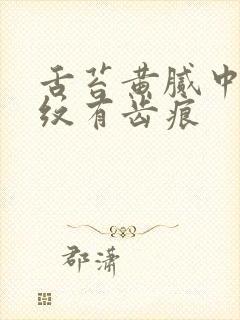 舌苔黄腻中
纹有齿痕
郡潇